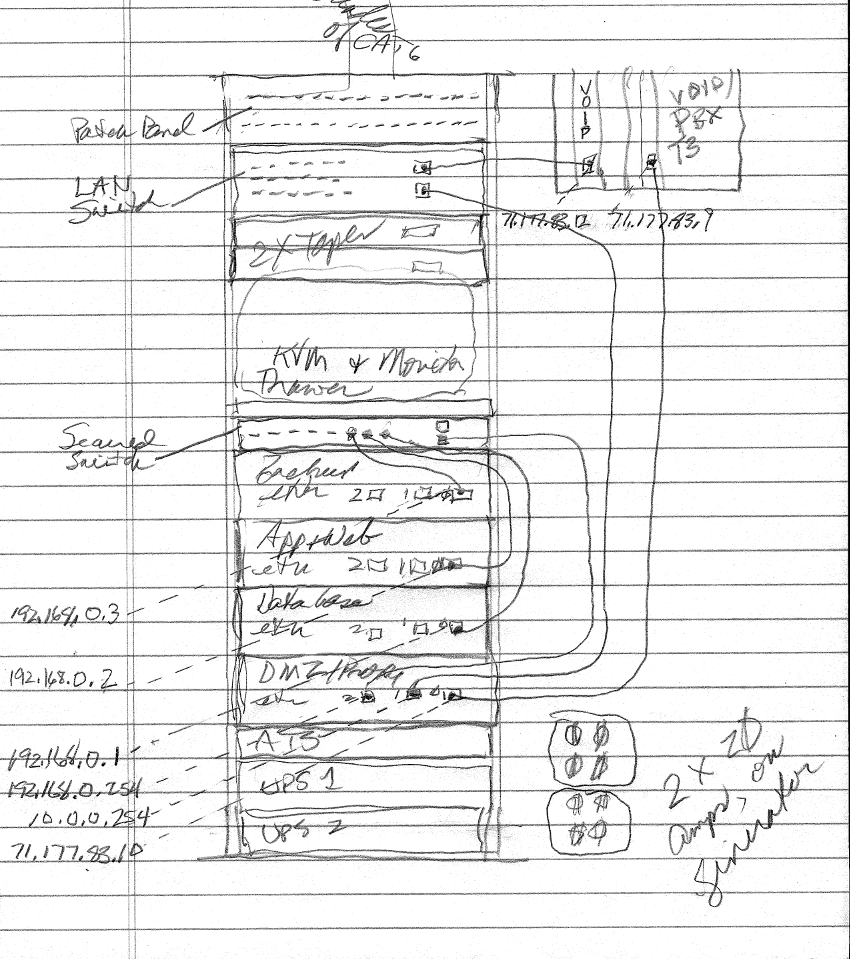 of CAT6
Patch Panel
LAN
Switch
VOIP
VOIP/
PBX
T3
71.177.83.9
2X Tapes
KVM & Monitor
Drawer
Secured
Switch
Backup
eth 2 1 0
App+Web
eth 2 1 0
192.168.0.3
Database
eth 2 1 0
192.168.0.2
DMZ/Proxy
eth 2 1 0
192.168.0.1
ATS
192.168.0.254
10.0.0.254
UPS 1
71.177.83.10
UPS 2
2 X 20
amps, on
Generator